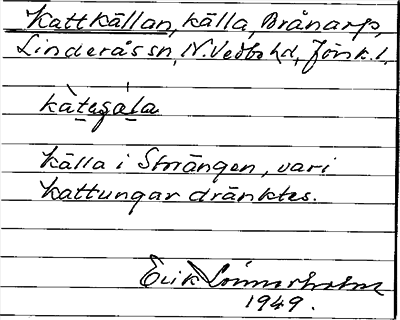 Kattkällan, källa, Brånarp,
Linderås sn, N. Vedbo hd, Jönk. l.
kàtegála
Källa i Storängen, vari
kattungar dränktes.
Erik Lönnerholm
1949.